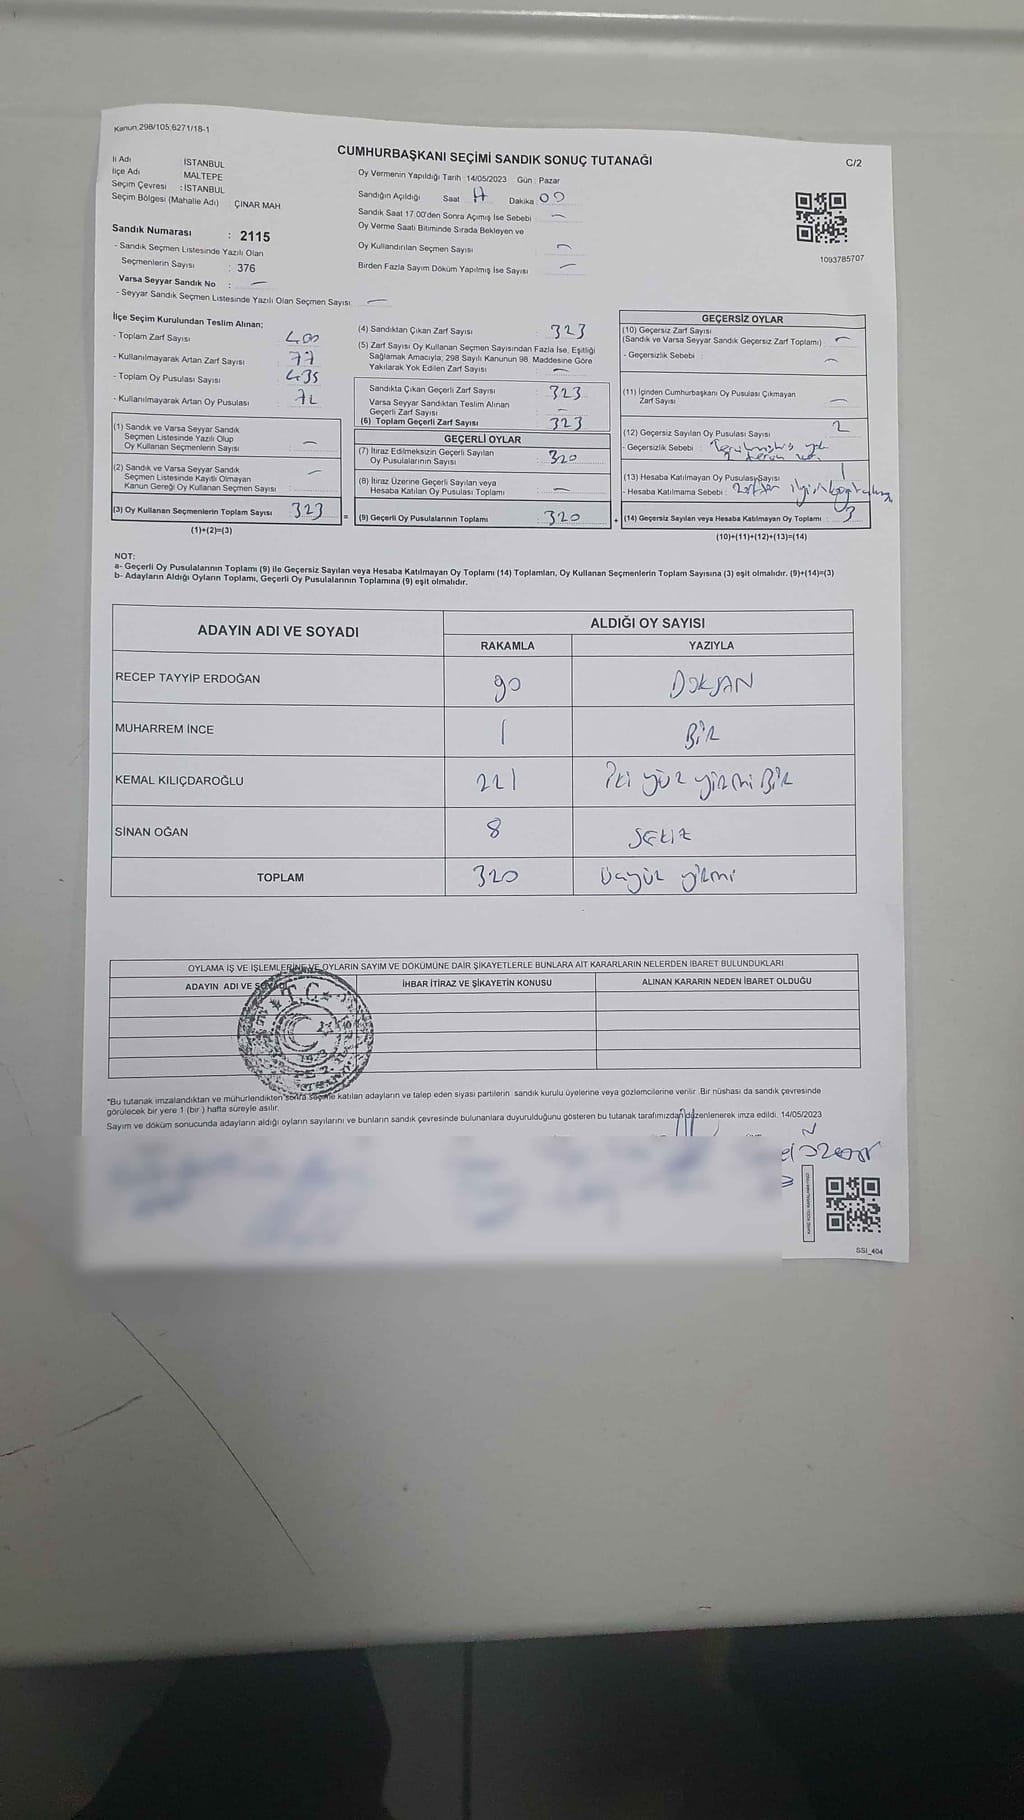 Kanun:298/105,6271/18-1
CUMHURBAŞKANI SEÇİMİ SANDIK SONUÇ TUTANAĞI
C/2
İl Adı İSTANBUL
İlçe Adı MALTEPE
Seçim Çevresi : İSTANBUL
Seçim Bölgesi (Mahalle Adı) ÇINAR MAH.
Sandık Numarası : 2115
- Sandık Seçmen Listesinde Yazılı Olan
Seçmenlerin Sayısı : 376
Varsa Seyyar Sandık No : —
- Seyyar Sandık Seçmen Listesinde Yazılı Olan Seçmen Sayısı —
Oy Vermenin Yapıldığı Tarih :14/05/2023 Gün : Pazar
Sandığın Açıldığı Saat 17 Dakika 00
Sandık Saat 17.00'den Sonra Açımış İse Sebebi —
Oy Verme Saati Bitiminde Sırada Bekleyen ve
Oy Kullandırılan Seçmen Sayısı —
Birden Fazla Sayım Döküm Yapılmış İse Sayısı —
1093785707
İlçe Seçim Kurulundan Teslim Alınan;
- Toplam Zarf Sayısı 400
- Kullanılmayarak Artan Zarf Sayısı 77
- Toplam Oy Pusulası Sayısı 435
- Kullanılmayarak Artan Oy Pusulası
(1) Sandık ve Varsa Seyyar Sandık
Seçmen Listesinde Yazılı Olup
Oy Kullanan Seçmenlerin Sayısı —
(2) Sandık ve Varsa Seyyar Sandık
Seçmen Listesinde Kayıtlı Olmayan
Kanun Gereği Oy Kullanan Seçmen Sayısı —
(3) Oy Kullanan Seçmenlerin Toplam Sayısı 323 =
(1)+(2)=(3)
(4) Sandıktan Çıkan Zarf Sayısı : 323
(5) Zarf Sayısı Oy Kullanan Seçmen Sayısından Fazla İse, Eşitliği
Sağlamak Amacıyla; 298 Sayılı Kanunun 98. Maddesine Göre
Yakılarak Yok Edilen Zarf Sayısı —
Sandıkta Çıkan Geçerli Zarf Sayısı : 323
Varsa Seyyar Sandıktan Teslim Alınan
Geçerli Zarf Sayısı —
(6) Toplam Geçerli Zarf Sayısı : 323
GEÇERLİ OYLAR
(7) İtiraz Edilmeksizin Geçerli Sayılan
Oy Pusulalarının Sayısı : 320
(8) İtiraz Üzerine Geçerli Sayılan veya
Hesaba Katılan Oy Pusulası Toplamı —
(9) Geçerli Oy Pusulalarının Toplamı : 320 +
GEÇERSİZ OYLAR
(10) Geçersiz Zarf Sayısı
(Sandık ve Varsa Seyyar Sandık Geçersiz Zarf Toplamı) —
- Geçersizlik Sebebi : —
(11) İçinden Cumhurbaşkanı Oy Pusulası Çıkmayan
Zarf Sayısı —
(12) Geçersiz Sayılan Oy Pusulası Sayısı 2
- Geçersizlik Sebebi :
(13) Hesaba Katılmayan Oy Pusulası Sayısı 1
- Hesaba Katılmama Sebebi :
(14) Geçersiz Sayılan veya Hesaba Katılmayan Oy Toplamı : 3
(10)+(11)+(12)+(13)=(14)
NOT:
a- Geçerli Oy Pusulalarının Toplamı (9) ile Geçersiz Sayılan veya Hesaba Katılmayan Oy Toplamı (14) Toplamları, Oy Kullanan Seçmenlerin Toplam Sayısına (3) eşit olmalıdır. (9)+(14)=(3)
b- Adayların Aldığı Oyların Toplamı, Geçerli Oy Pusulalarının Toplamına (9) eşit olmalıdır.
ADAYIN ADI VE SOYADI ALDIĞI OY SAYISI
RAKAMLA YAZIYLA
RECEP TAYYİP ERDOĞAN 90 DOKSAN
MUHARREM İNCE 1 BİR
KEMAL KILIÇDAROĞLU 221 İki yüz yirmi BİR
SİNAN OĞAN 8 SEKİZ
TOPLAM 320 üçyüz yirmi
OYLAMA İŞ VE İŞLEMLERİNE VE OYLARIN SAYIM VE DÖKÜMÜNE DAİR ŞİKAYETLERLE BUNLARA AİT KARARLARIN NELERDEN İBARET BULUNDUKLARI
ADAYIN ADI VE SOYADI İHBAR İTİRAZ VE ŞİKAYETİN KONUSU ALINAN KARARIN NEDEN İBARET OLDUĞU
T.C.
*Bu tutanak imzalandıktan ve mühürlendikten sonra seçime katılan adayların ve talep eden siyasi partilerin sandık kurulu üyelerine veya gözlemcilerine verilir. Bir nüshası da sandık çevresinde
görülecek bir yere 1 (bir ) hafta süreyle asılır.
Sayım ve döküm sonucunda adayların aldığı oyların sayılarını ve bunların sandık çevresinde bulunanlara duyurulduğunu gösteren bu tutanak tarafımızdan düzenlenerek imza edildi. 14/05/2023
SSI_404